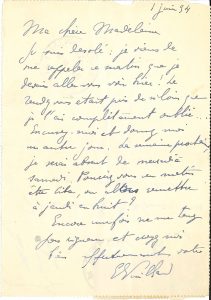 1 juin 94
Ma chère Madeleine
Je suis désolé ; je viens de
me rappeler ce matin que je
devais aller vous voir hier ! Le
rendez vous était pris de si loin que
je l'ai complètement oublié...
Excusez moi et donnez moi
un autre jour. La semaine prochaine
je serai absent de mercredi à
samedi. Pouvez vous me mettre
 ou alors remettre
à jeudi en huit ?
Encore une fois ne me tenez
pas rigueur et croyez moi
bien affectueusement votre